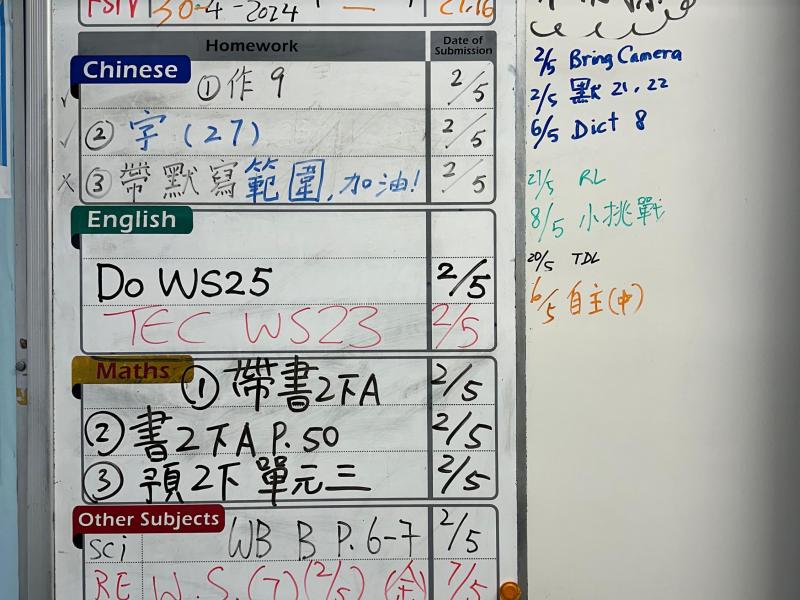 30-4-2024
Homework Date of Submission
Chinese
① 作 9 2/5
② 字 (27) 2/5
③ 帶默寫範圍,加油! 2/5
English
Do WS25 2/5
TEC WS23 2/5
Maths
① 帶書2下A 2/5
② 書2下A P.50 2/5
③ 預2下單元三 2/5
Other Subjects
Sci WB B P.6-7 2/5
RE W.S.(7)(2/5) (金) 7/5
2/5 Bring Camera
2/5 默 21, 22
6/5 Dict 8
27/5 RL
8/5 小挑戰
20/5 TDL
6/5 自主(中)